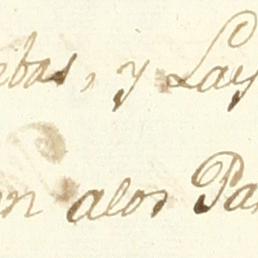 ebas, y Lay
on alos Pa